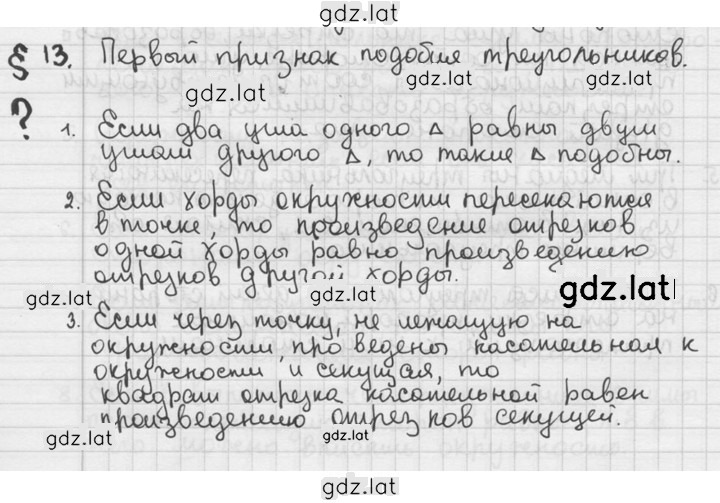 gdz.lat
§ 13. Первый признак подобия треугольников.
gdz.lat
gdz.lat
?
1. Если два угла одного Δ равны двум
углам другого Δ, то такие Δ подобны.
gdz.lat
gdz.lat
2. Если хорды окружности пересекаются
в точке, то произведение отрезков
одной хорды равно произведению
отрезков другой хорды.
gdz.lat
gdz.lat
gdz.lat
3. Если через точку, не лежащую на
окружности, проведены касательная к
окружности и секущая, то
квадрат отрезка касательной равен
произведению отрезков секущей.
gdz.lat
gdz.lat
gdz.lat